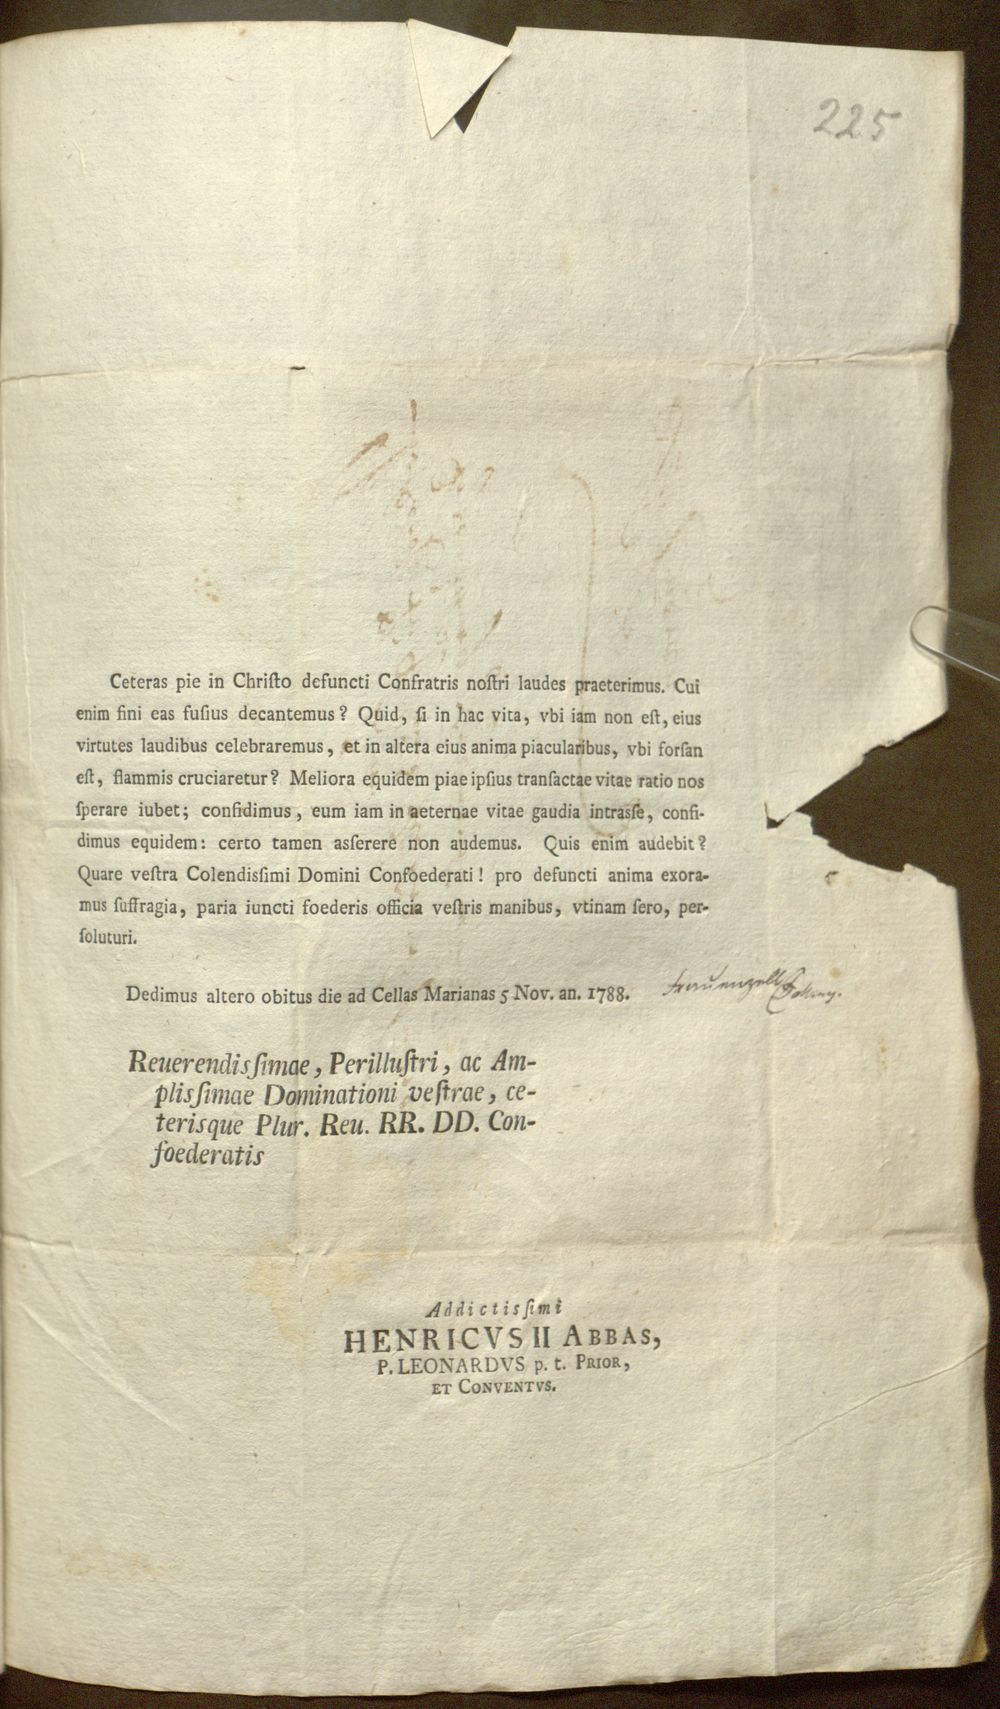 225
Ceteras pie in Chriſto defuncti Confratris noſtri laudes praeterimus. Cui
enim fini eas fuſius decantemus? Quid, ſi in hac vita, vbi iam non eſt, eius
virtutes laudibus celebraremus, et in altera eius anima piacularibus, vbi forſan
eſt, flammis cruciaretur? Meliora equidem piae ipſius tranſactae vitae ratio nos
ſperare iubet; confidimus, eum iam in aeternae vitae gaudia intraſſe, confi-
dimus equidem: certo tamen aſſerere non audemus. Quis enim audebit?
Quare veſtra Colendisſimi Domini Confoederati! pro defuncti anima exora-
mus ſuffragia, paria iuncti foederis officia veſtris manibus, vtinam ſero, per-
ſoluturi.
Dedimus altero obitus die ad Cellas Marianas 5 Nov. an. 1788. Frauenzell
Reuerendisſimae, Perilluſtri, ac Am-
plisſimae Dominationi veſtrae, ce-
terisque Plur. Reu. RR. DD. Con-
foederatis
Addictisſimi
HENRICVS II ABBAS,
P. LEONARDVS p. t. PRIOR,
ET CONVENTVS.